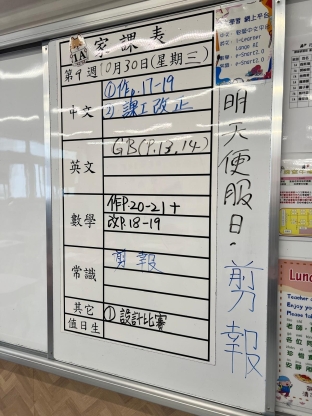 1A 家課表
第9週 10月30日(星期三)
中文
①作p.17-19
② 課工改正
英文
GB(P.13,14)
數學
作P.20-21+
改P.18-19
常識
剪報
其它
① 設計比賽
值日生
明天便服日，剪報
學習 網上平台
i-Learner
e-Smart2.0
e-Smart2.0
Teacher
Enjoy your
老師
各位同
珍惜
安靜用